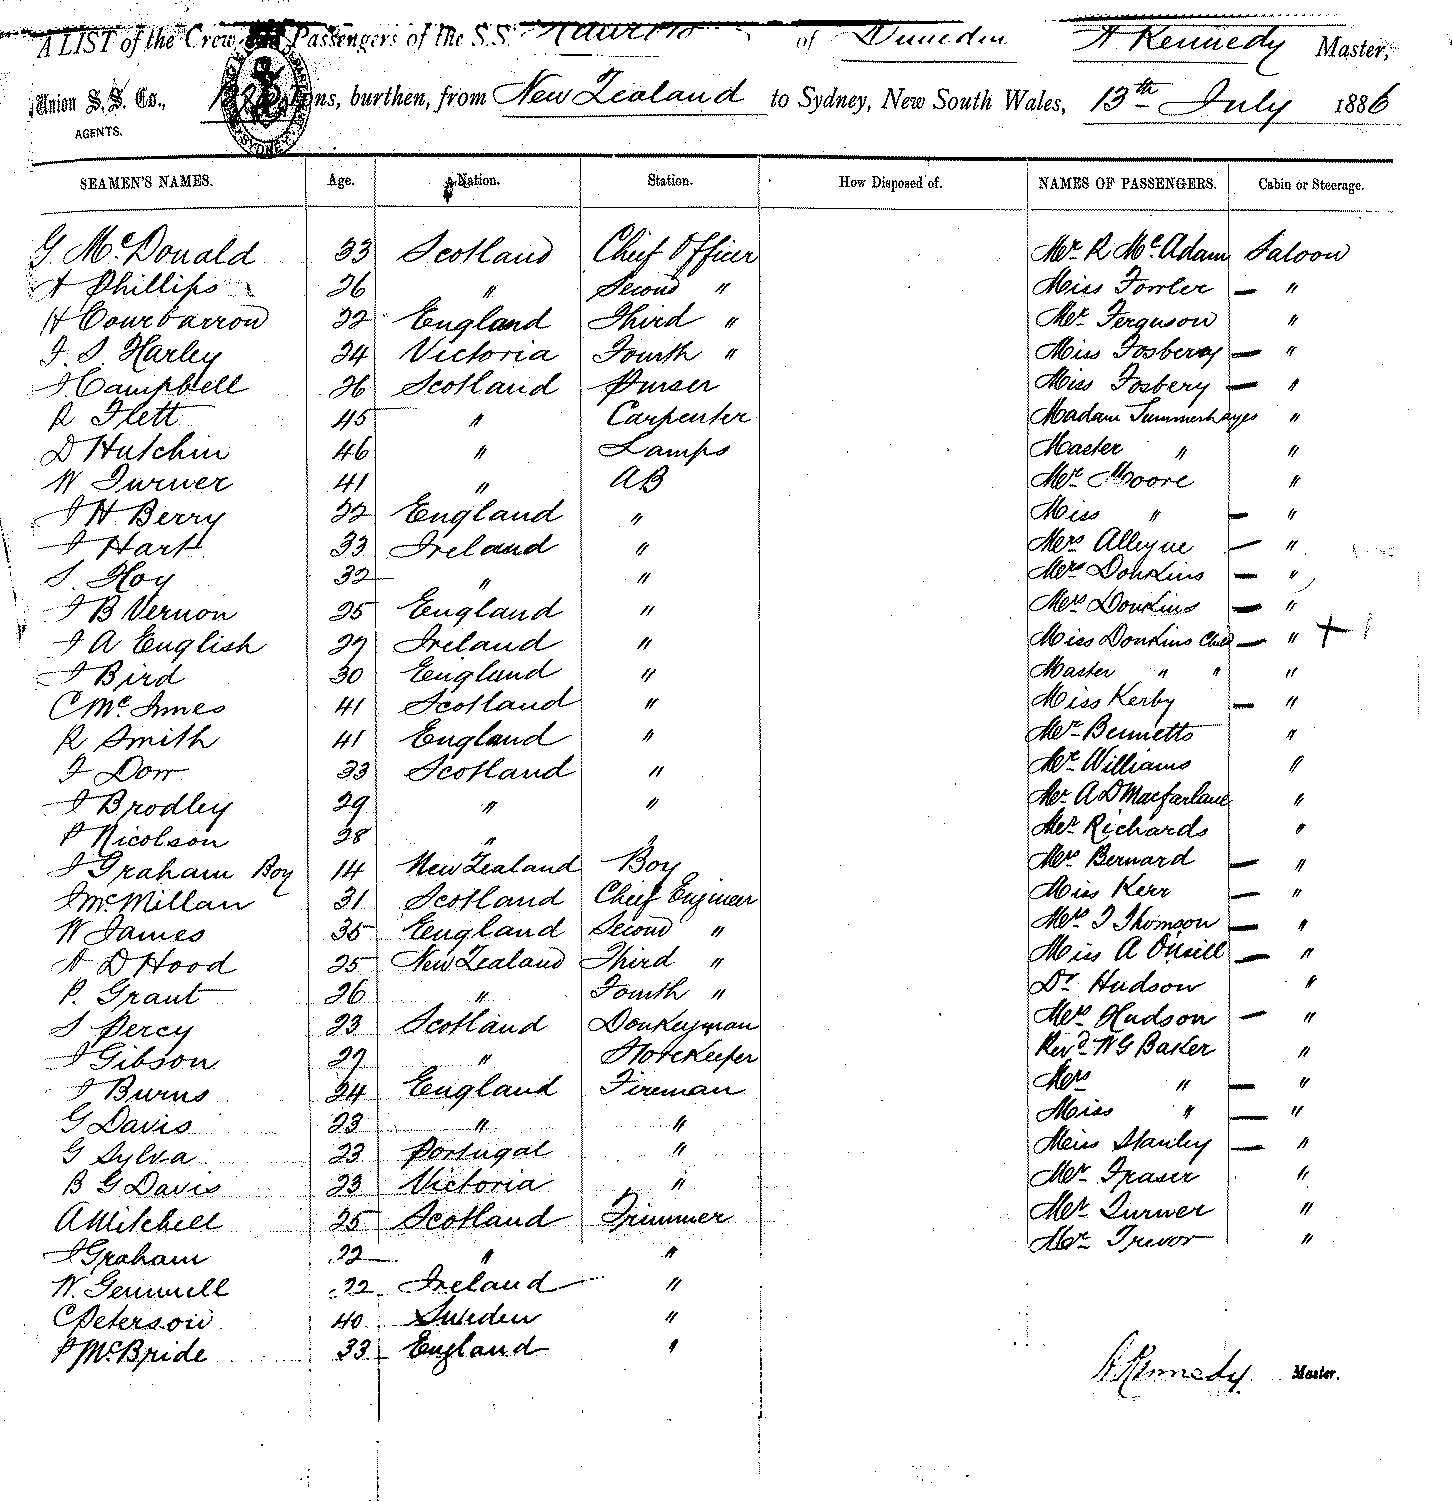 A LIST of the Crew and Passengers of the S.S. of Dunedin A Kennedy Master,
Union S.S. Co., AGENTS. Tons, burthen, from New Zealand to Sydney, New South Wales, 13th July 1886
SEAMEN'S NAMES. Age. Nation. Station. How Disposed of. NAMES OF PASSENGERS. Cabin or Steerage.
G McDonald 33 Scotland Chief Officer Mr R McAdam Saloon
A Phillips 26 " Second " Miss Fowler — "
H Courbarron 22 England Third " Mr Ferguson "
J. S. Harley 24 Victoria Fourth " Miss Fosbery — "
J Campbell 26 Scotland Purser Miss Fosbery — "
R Flett 45 " Carpenter Madam Summerhayes "
D Hutchin 46 " Lamps Master " "
W Turner 41 " AB Mr Moore "
J H Berry 22 England " Miss " — "
J Hart 33 Ireland " Mrs Alleyne — "
S. Hoy 32 " " Mrs Donkins — "
J B Vernon 25 England " Mrs Donkins — "
J A English 27 Ireland " Miss Donkins Child — " +
J Bird 30 England " Master " " "
C McInnes 41 Scotland " Miss Kerby — "
R Smith 41 England " Mr Bennetts "
J Dow 33 Scotland " Mr Williams "
J Brodley 29 " " Mr A D Macfarlane "
P Nicolson 28 " " Mr Richards "
J Graham Boy 14 New Zealand Boy Mrs Bernard — "
J McMillan 31 Scotland Chief Engineer Miss Kerr — "
W James 35 England Second " Mrs J Thomson — "
A D Hood 25 New Zealand Third " Miss A O'Neill — "
P. Grant 26 " Fourth " Dr Hudson "
S Percy 23 Scotland Donkeyman Mrs Hudson — "
J Gibson 27 " Storekeeper Revd W G Baker "
J Burns 24 England Fireman Mrs " — "
G Davis 23 " " Miss " — "
G Sylva 23 Portugal " Miss Stanley — "
B G Davis 23 Victoria " Mr Fraser "
A Mitchell 25 Scotland Trimmer Mr Turner "
J Graham 22 " " Mr Trevor "
W. Gemmell 22 Ireland "
C Peterson 40 Sweden "
P McBride 33 England "
A Kennedy Master.